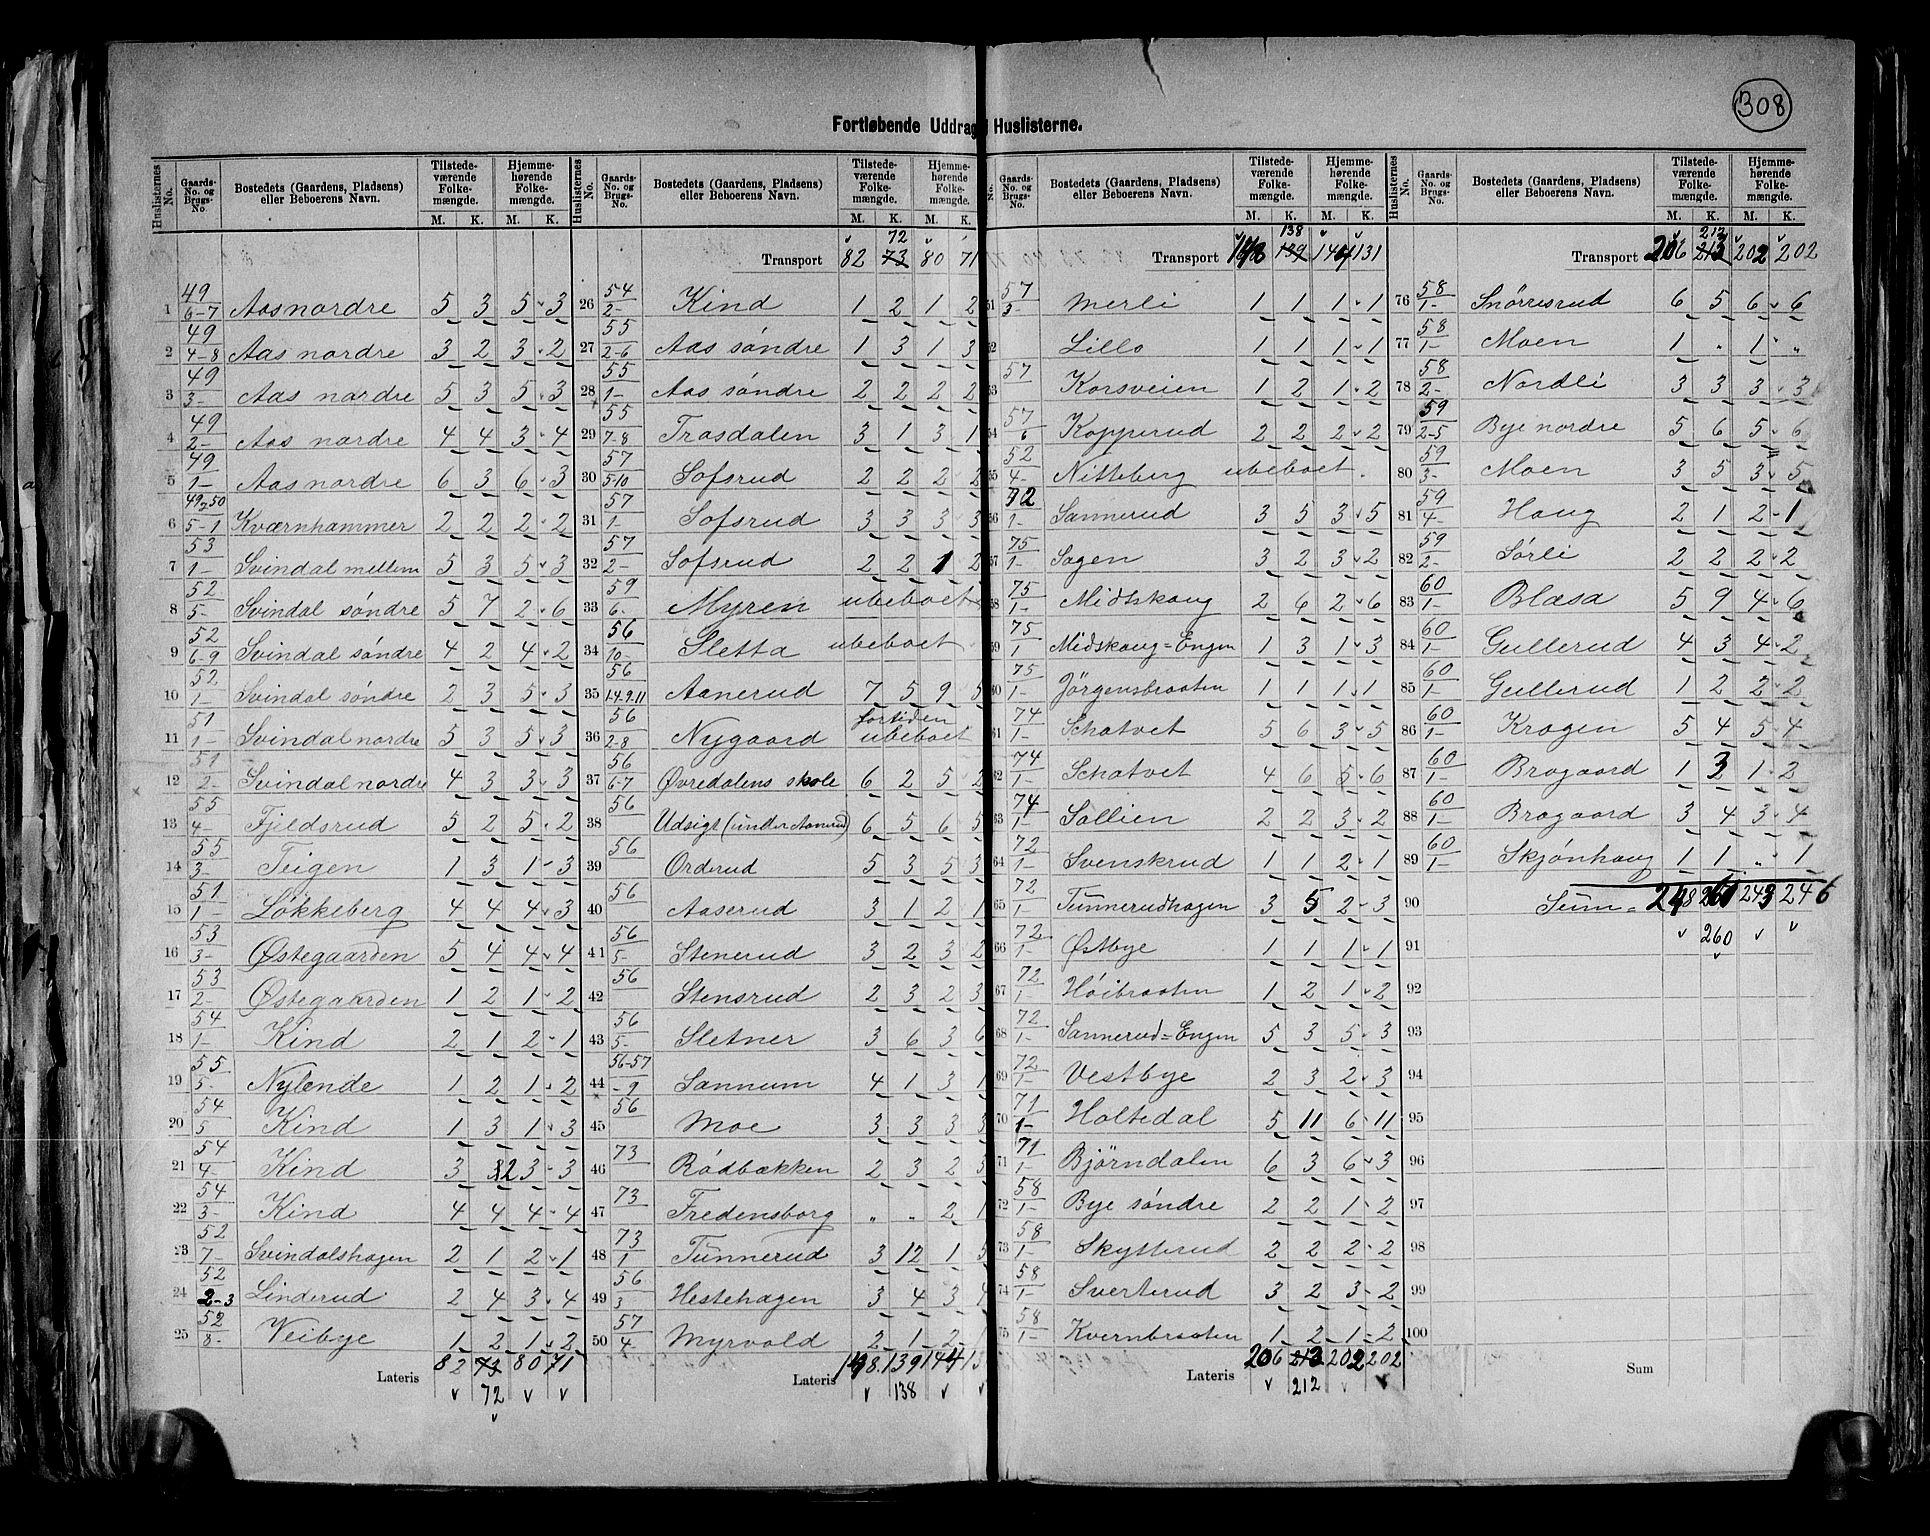 308
Fortløbende Uddrag Huslisterne.
Huslisternes No. | Gaards-No. og Brugs-No. | Bostedets (Gaardens, Pladsens) eller Beboerens Navn. | Tilstedeværende Folkemængde. M. K. | Hjemmehørende Folkemængde. M. K.
1 49/6-7 Aas nordre 5 3 5 3
2 49/4-8 Aas nordre 3 2 3 2
3 49/3- Aas nordre 5 3 5 3
4 49/2- Aas nordre 4 4 3 4
5 49/1- Aas nordre 6 3 6 3
6 49-50/5-1 Kværnhammer 2 2 2 2
7 53/1- Svindal mellem 5 3 5 3
8 52/5- Svindal søndre 5 7 2 6
9 52/6-9 Svindal søndre 4 2 4 2
10 52/1- Svindal søndre 2 3 5 3
11 51/1- Svindal nordre 5 3 5 3
12 51/2- Svindal nordre 4 3 3 3
13 55/4- Fjeldsrud 5 2 5 2
14 55/3- Teigen 1 3 1 3
15 51/1- Løkkeberg 4 4 4 3
16 53/3- Østegaarden 5 4 4 4
17 53/2- Østegaarden 1 2 1 2
18 54/1- Kind 2 1 2 1
19 55/5- Nylende 1 2 1 2
20 54/5 Kind 1 3 1 3
21 54/4- Kind 3 2 3 3
22 54/3- Kind 4 4 4 4
23 52/7- Svindalshagen 2 1 2 1
24 52/2-3 Linderud 2 4 3 4
25 52/8- Veibye 1 2 1 2
Lateris 82 73 80 71
72
Huslisternes No. | Gaards-No. og Brugs-No. | Bostedets (Gaardens, Pladsens) eller Beboerens Navn. | Tilstedeværende Folkemængde. M. K. | Hjemmehørende Folkemængde. M. K.
72
Transport 82 73 80 71
26 54/2- Kind 1 2 1 2
27 55/2-6 Aas søndre 1 3 1 3
28 55/1- Aas søndre 2 2 2 2
29 55/7-8 Trosdalen 3 1 3 1
30 57/5-10 Sofsrud 2 2 2 2
31 57/1- Sofsrud 3 3 3 3
32 57/2- Sofsrud 2 2 1 2
33 59/6- Myren ubeboet
34 56/10- Sletta ubeboet
35 56/1.4.9.11 Aanerud 7 5 9 5
36 56/2-8 Nygaard fortiden ubeboet
37 56/6-7 Øvredalens skole 6 2 5 2
38 56 Udsigt (under Aanerud) 6 5 6 5
39 56 Orderud 5 3 5 3
40 56 Aaserud 3 1 2 1
41 56/5- Stenerud 3 2 3 2
42 56 Stensrud 2 3 2 3
43 56/5- Sletner 3 6 3 6
44 56-57/-9 Sannum 4 1 3 1
45 56 Moe 3 3 3 3
46 73 Rødbækken 2 3 2 5
47 73 Fredensborg „ „ 2 1
48 73/1 Tunnerud 3 12 1 5
49 56/3 Hestehagen 3 4 3 4
50 57/4 Myrvold 2 1 2 1
Lateris 148 139 144 13
138
No. | Gaards-No. og Brugs-No. | Bostedets (Gaardens, Pladsens) eller Beboerens Navn. | Tilstedeværende Folkemængde. M. K. | Hjemmehørende Folkemængde. M. K.
138
Transport 148 139 144 131
51 57/3- Merli 1 1 1 1
52 Lillo 1 1 1 1
53 57 Korsveien 1 2 1 2
54 57/6 Kopperud 2 2 2 2
55 52/4- Nitteberg ubeboet
56 72/1- Sannerud 3 5 3 5
57 75/1- Sagen 3 2 3 2
58 75/1- Midtskoug 2 6 2 6
59 75/1 Midskoug=Engen 1 3 1 3
60 75/1- Jørgensbraaten 1 1 1 1
61 74/1- Schatvet 5 6 3 5
62 74/1- Schatvet 4 6 5 6
63 74/1- Sollien 2 2 3 2
64 72/1- Svenskrud 1 1 2 1
65 72/1- Tunnerudhagen 3 5 2 3
66 72/1- Østbye 1 1 1 1
67 72/1- Høibraaten 1 2 1 2
68 72/1- Sannerud=Engen 5 3 5 3
69 72/1- Vestbye 2 3 2 3
70 71/1- Holtedal 5 11 6 11
71 71/1- Bjørndalen 6 3 6 3
72 58/1- Bye søndre 2 2 1 2
73 58/1- Skytterud 2 2 2 2
74 58/1- Sverterud 3 2 3 2
75 58/1- Kvernbraaten 1 2 1 2
Lateris 206 213 202 202
212
Huslisternes No. | Gaards-No. og Brugs-No. | Bostedets (Gaardens, Pladsens) eller Beboerens Navn. | Tilstedeværende Folkemængde. M. K. | Hjemmehørende Folkemængde. M. K.
212
Transport 206 213 202 202
76 58/1- Snørresrud 6 5 6 6
77 58/1- Moen 1 „ 1 „
78 58/2- Nordli 3 3 3 3
79 59/2-5 Bye nordre 5 6 5 6
80 59/3- Moen 3 5 3 5
81 59/4- Haug 2 1 2 1
82 59/2- Sørli 2 2 2 2
83 60/1- Blæsa 5 9 4 6
84 60/1- Gullerud 4 3 4 2
85 60/1- Gullerud 1 2 2 2
86 60/1- Krogen 5 4 5 4
87 60/1- Brogaard 1 3 1 2
88 60/1- Brogaard 3 4 3 4
89 60/1- Skjønhaug 1 1 „ 1
90 Sum = 248 261 243 246
91 260
92
93
94
95
96
97
98
99
100
Sum